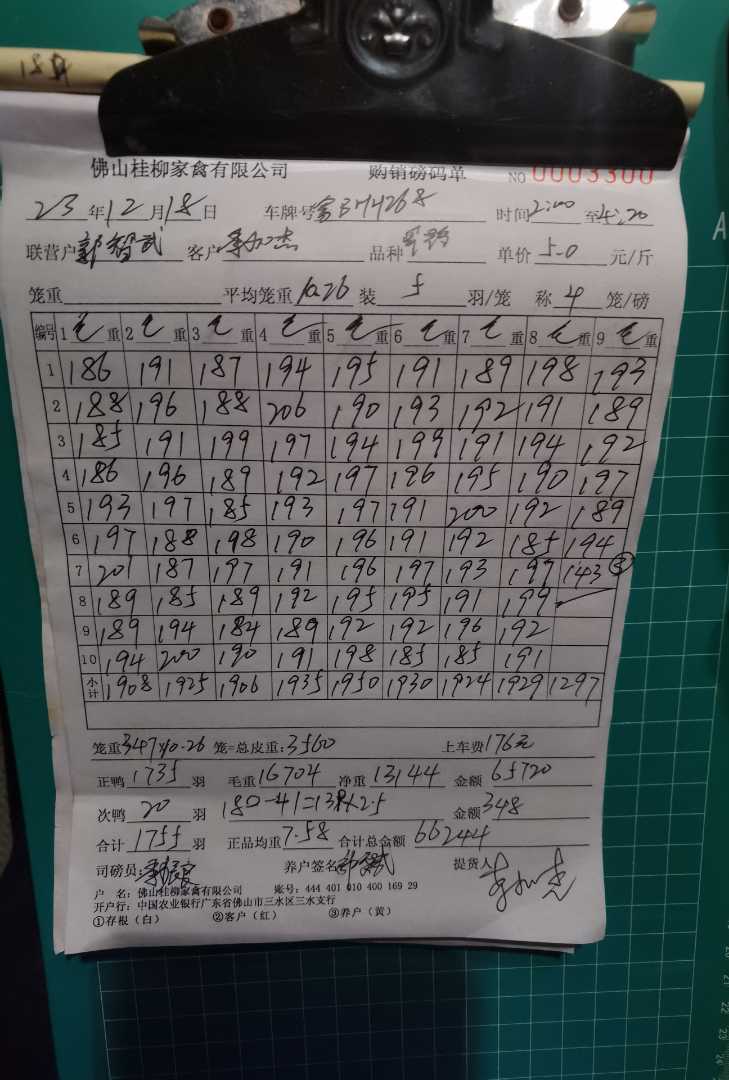 佛山桂柳家禽有限公司 购销磅码单 NO 0003300
23 年 12 月 18 日 车牌号 3H4268 时间 2:00 至 4:20
联营户 郭智武 客户 品种 单价 5.0 元/斤
笼重 平均笼重 10.26 装 5 羽/笼 称 4 笼/磅
编号 1 毛 重 2 毛 重 3 毛 重 4 毛 重 5 毛 重 6 毛 重 7 毛 重 8 毛 重 9 毛 重
1 186 191 187 194 195 191 189 198 193
2 188 196 188 206 190 193 192 191 189
3 185 191 199 197 194 199 191 194 192
4 186 196 189 192 197 196 195 190 197
5 193 197 185 193 197 191 200 192 189
6 197 188 198 190 196 191 192 185 194
7 201 187 197 191 196 197 193 197 143 ③
8 189 185 189 192 195 195 191 199
9 189 194 184 189 192 192 196 192
10 194 200 190 191 198 185 185 191
小计 1908 1925 1906 1935 1950 1930 1924 1929 1297
笼重 347×10.26 笼=总皮重: 3560 上车费 176元
正鸭 1735 羽 毛重 16704 净重 13144 金额 65720
次鸭 20 羽 180-41=139×2.5 金额 348
合计 1755 羽 正品均重 7.58 合计总金额 66244
司磅员: 养户签名 提货人
户 名: 佛山桂柳家禽有限公司 账号: 444 401 010 400 169 29
开户行: 中国农业银行广东省佛山市三水区三水支行
①存根（白） ②客户（红） ③养户（黄）